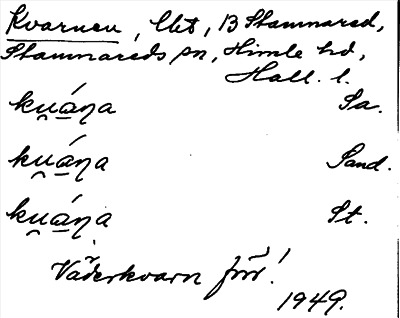 Kvarnen, Lht, B Stamnared,
Stamnareds sn, Himle hd,
Hall. l.
kṷá̠ŋa Sa.
kṷá̠ŋa Sand.
kṷá̠ŋa St.
Väderkvarn förr!
1949.